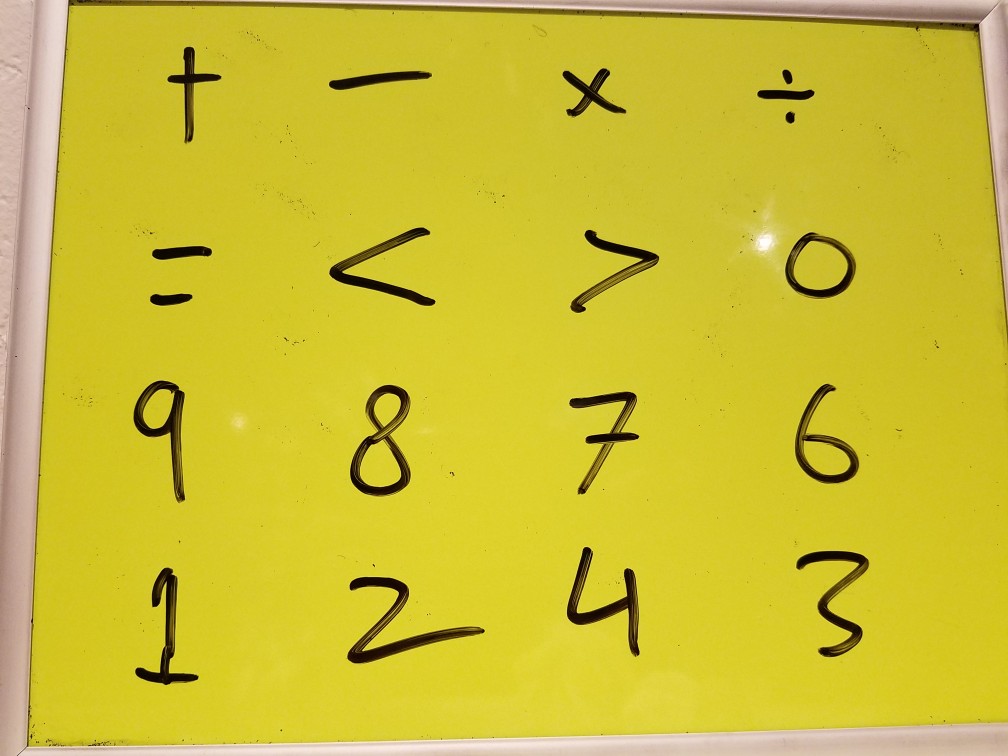 + − × ÷
= < > 0
9 8 7 6
1 2 4 3